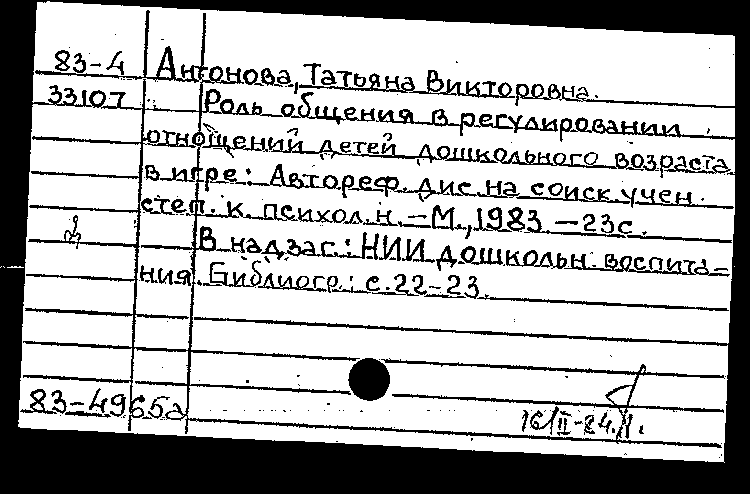 83-4 Антонова, Татьяна Викторовна.
33107 Роль общения в регулировании
отношений детей дошкольного возраста
в игре: Автореф. дис. на соиск. учен.
степ. к. психол. н. – М., 1983. – 23с.
В надзаг.: НИИ дошкольн. воспита-
ния. Библиогр.: с. 22-23.
83-4965а
16/II-84.